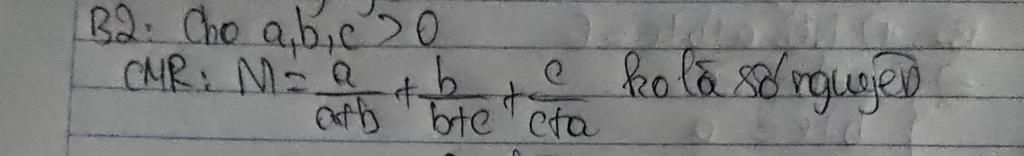 B2: Cho a,b,c > 0
CMR: M = a/(a+b) + b/(b+c) + c/(c+a) ko là số nguyên